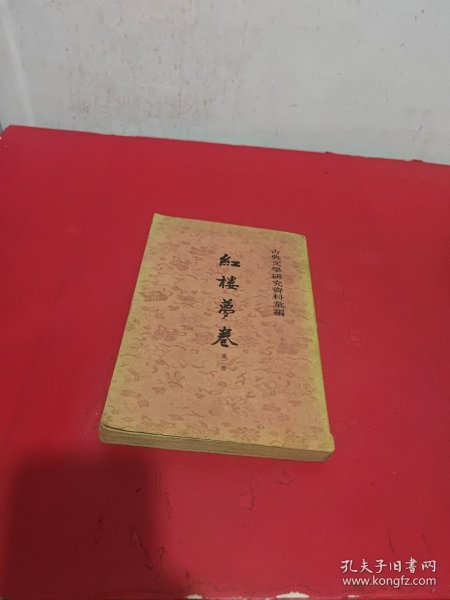 古典文學研究資料彙編
紅樓夢卷
第二册
孔夫子旧书网
www.kongfz.com